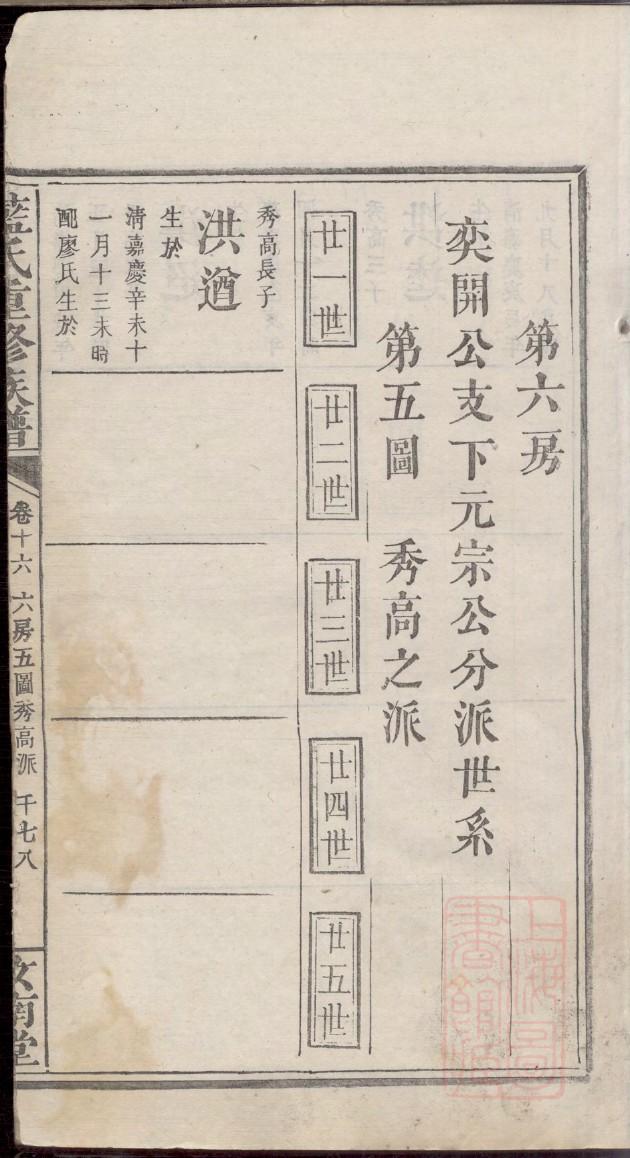 第六房
奕開公支下元宗公分派世系
第五圖 秀高之派
廿一世
廿二世
廿三世
廿四世
廿五世
秀高長子
洪遒
生於
清嘉慶辛未十
一月十三未時
配廖氏生於
藍氏重修族譜
卷十六 六房五圖秀高派 千七八
汝南堂